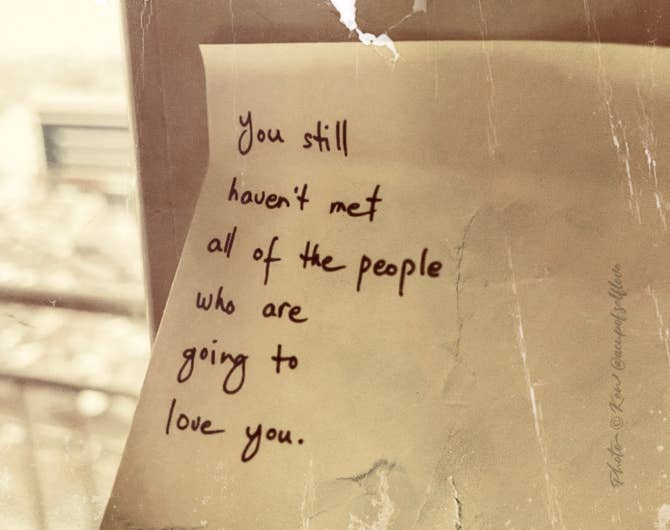 You still
haven't met
all of the people
who are
going to
love you.
Photo © Kaw @acupofselflove